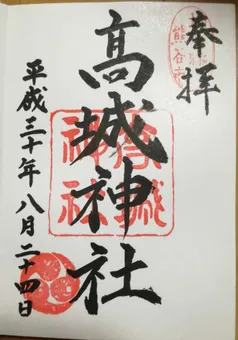 奉拝
熊谷市
髙城神社
髙城
神社
平成三十年八月二十四日